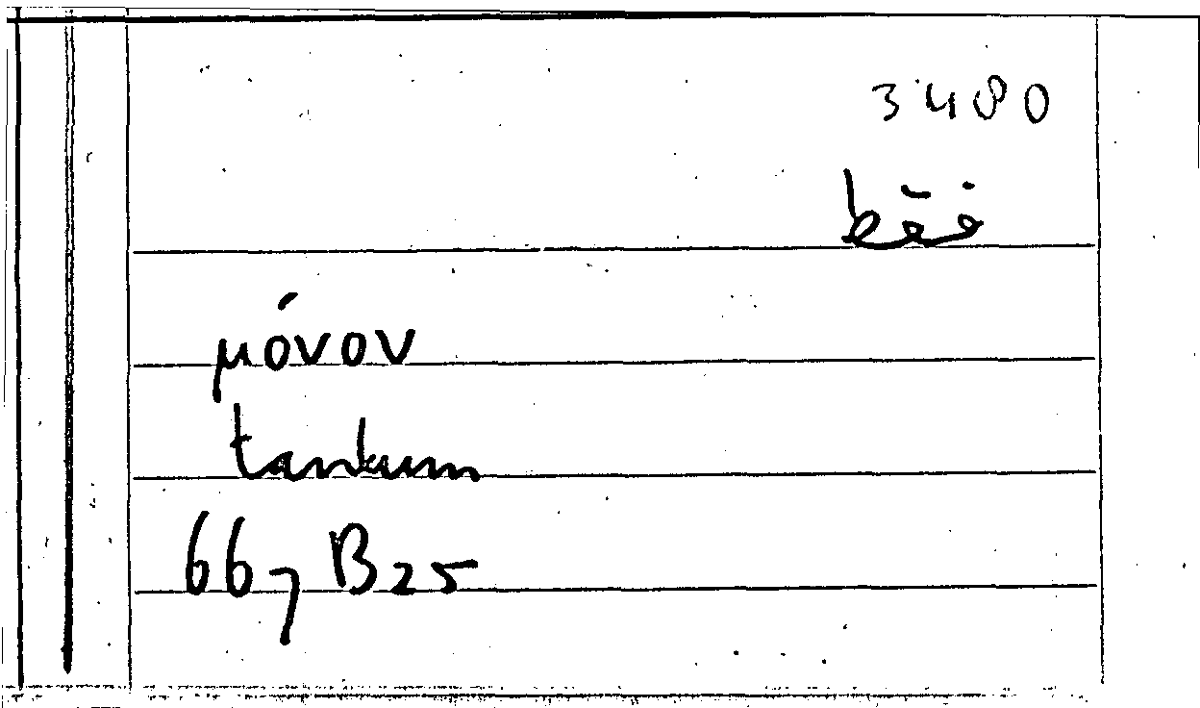 3480
فقط
μόνον
tantum
667 B25